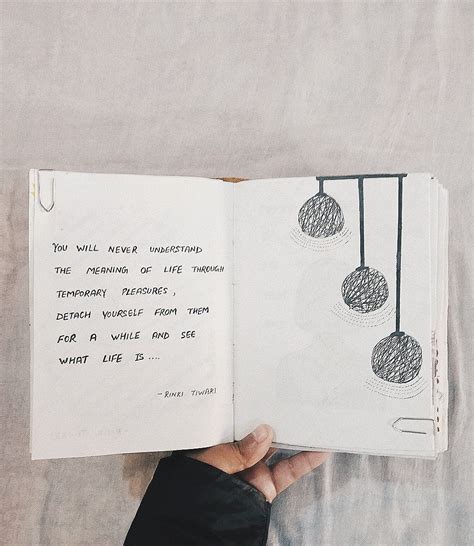 YOU WILL NEVER UNDERSTAND
THE MEANING OF LIFE THROUGH
TEMPORARY PLEASURES,
DETACH YOURSELF FROM THEM
FOR A WHILE AND SEE
WHAT LIFE IS....
-RINKI TIWARI